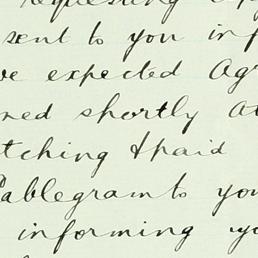 requesting
sent to you in
expected Ag
ned shortly at
tching & paid
Cablegram to you
informing yo